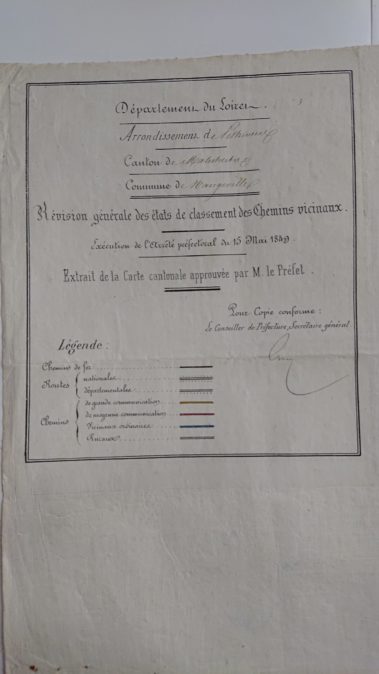 Département du Loiret.
Arrondissement de Pithiviers
Canton de Malesherbes
Commune de Nangeville
Révision générale des états de classement des Chemins vicinaux.
Exécution de l'Arrêté préfectoral du 15 Mai 1849
Extrait de la Carte cantonale approuvée par M. le Préfet.
Pour Copie conforme :
Le Conseiller de Préfecture, Secrétaire général
Légende :
Chemins de fer
Routes
nationales
départementales
Chemins
de grande communication
de moyenne communication
Vicinaux ordinaires
Ruraux